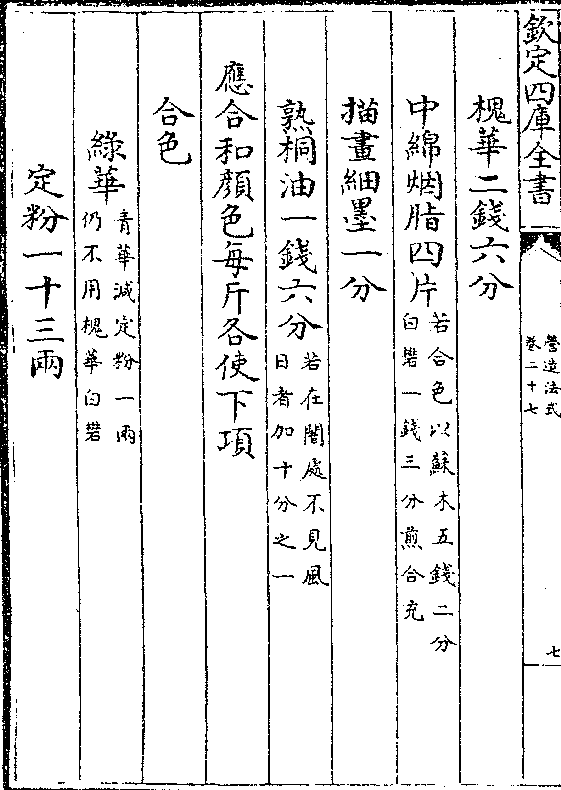 欽定四庫全書
營造法式
卷二十七
七
槐華二錢六分
中綿烟脂四片若合色以蘇木五錢二分
白礬一錢三分煎合充
描畫細墨一分
熟桐油一錢六分若在闇處不見風
日者加十分之一
應合和顔色每斤各使下項
合色
綠華青華減定粉一兩
仍不用槐華白礬
定粉一十三兩